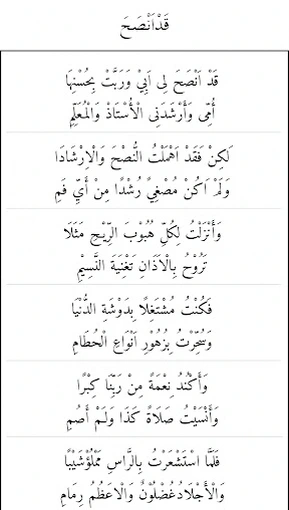 قَدْاَنْصَحَ
قَدْ اَنْصَحَ لِى اَبِيْ وَرَبَّتْ بِحُسْنِهَا
أُمِّى وَأَرْشَدَنِى الْأُسْتَاذْ وَالْمُعَلِّمِ
لَكِنْ فَقَدْ اَهْمَلْتُ النُّصْحَ وَالْاِرْشَادَا
وَلَمْ اَكُنْ مُصْغِيً رُشْدًا مِنْ أَيِّ فَمِ
وَأَنْزَلْتُ لِكُلِّ هُبُوْبَ الرِّيْحِ مَثَلَا
تَرُوْحُ بِالْاَذَانِ تَغْنِيَةَ النَّسِيْمِ
فَكُنْتُ مُشْتَغِلًا بِدَوْشَةِ الدُّنْيَا
وَسُحِّرْتُ بِزُهُوْرِ اَنْوَاعِ الْحُطَامِ
وَأَكْنُدُ نِعْمَةً مِنْ رَبِّنَا كِبْرًا
وَأَنْسَيْتُ صَلَاةً كَذَا وَلَمْ أَصُمِ
فَلَمَّا اسْتَشْعَرْتُ بِالرَّاسِ مَمْلُؤْشَيْبًا
وَالْأَجْلَادُغُضْلُوْنٌ وَالْاَعْظُمُ رِمَامِ